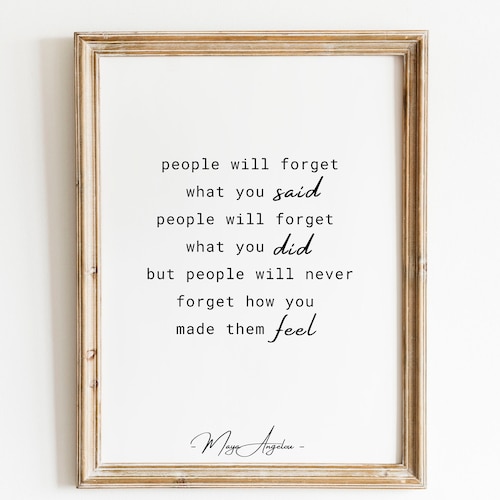 people will forget
what you said
people will forget
what you did
but people will never
forget how you
made them feel
- Maya Angelou -